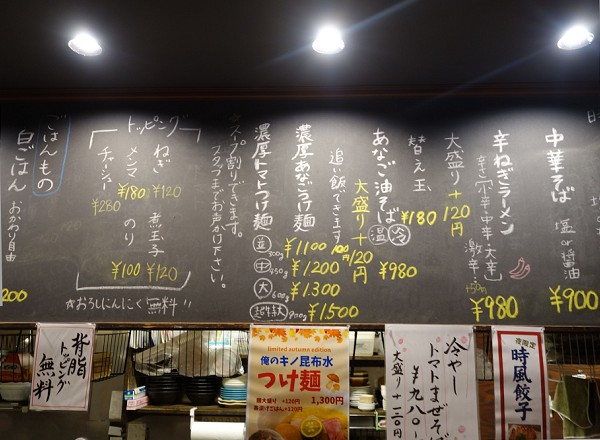 中華そば 塩 or 醤油
¥900
辛ねぎラーメン
辛さ[小辛・中辛・大辛]
激辛 +50円
¥980
大盛り+120円
替え玉 ¥180
あなご油そば 温 冷
¥980
大盛り+120円
追い飯できます 100円
濃厚あなごつけ麺
濃厚トマトつけ麺
並 300g ¥1100
中 450g ¥1200
大 600g ¥1300
超特大 900g ¥1,500
☆スープ割りできます。
スタッフまでお声かけ下さい。
トッピング
ねぎ ¥120
メンマ ¥180
チャーシュー ¥280
煮玉子 ¥120
のり ¥100
☆おろしにんにく無料!!
ごはんもの
白ごはん おかわり自由
200
背脂
トッピング
無料
limited autumn edition
俺のキノ昆布水
つけ麺
1,300円
冷やし
トマトまぜそば
¥九八〇-
大盛り+一二〇円
夜限定
時風餃子